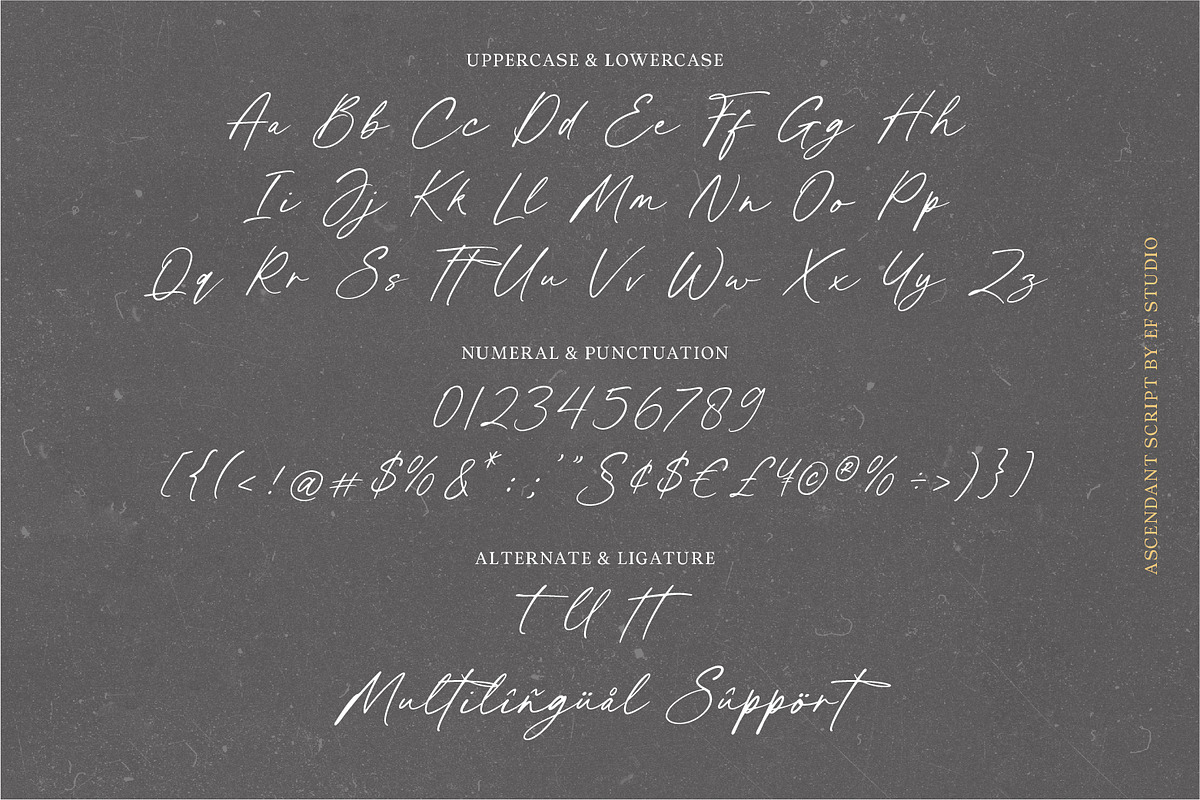 UPPERCASE & LOWERCASE
Aa Bb Cc Dd Ee Ff Gg Hh
Ii Jj Kk Ll Mm Nn Oo Pp
Qq Rr Ss Tt Uu Vv Ww Xx Yy Zz
NUMERAL & PUNCTUATION
0123456789
[{(<!@#$%&*:;'"§¢$€£¥©®%÷>)}]
ALTERNATE & LIGATURE
t ll tt
Multilîñgüål Sûppört
ASCENDANT SCRIPT BY EF STUDIO